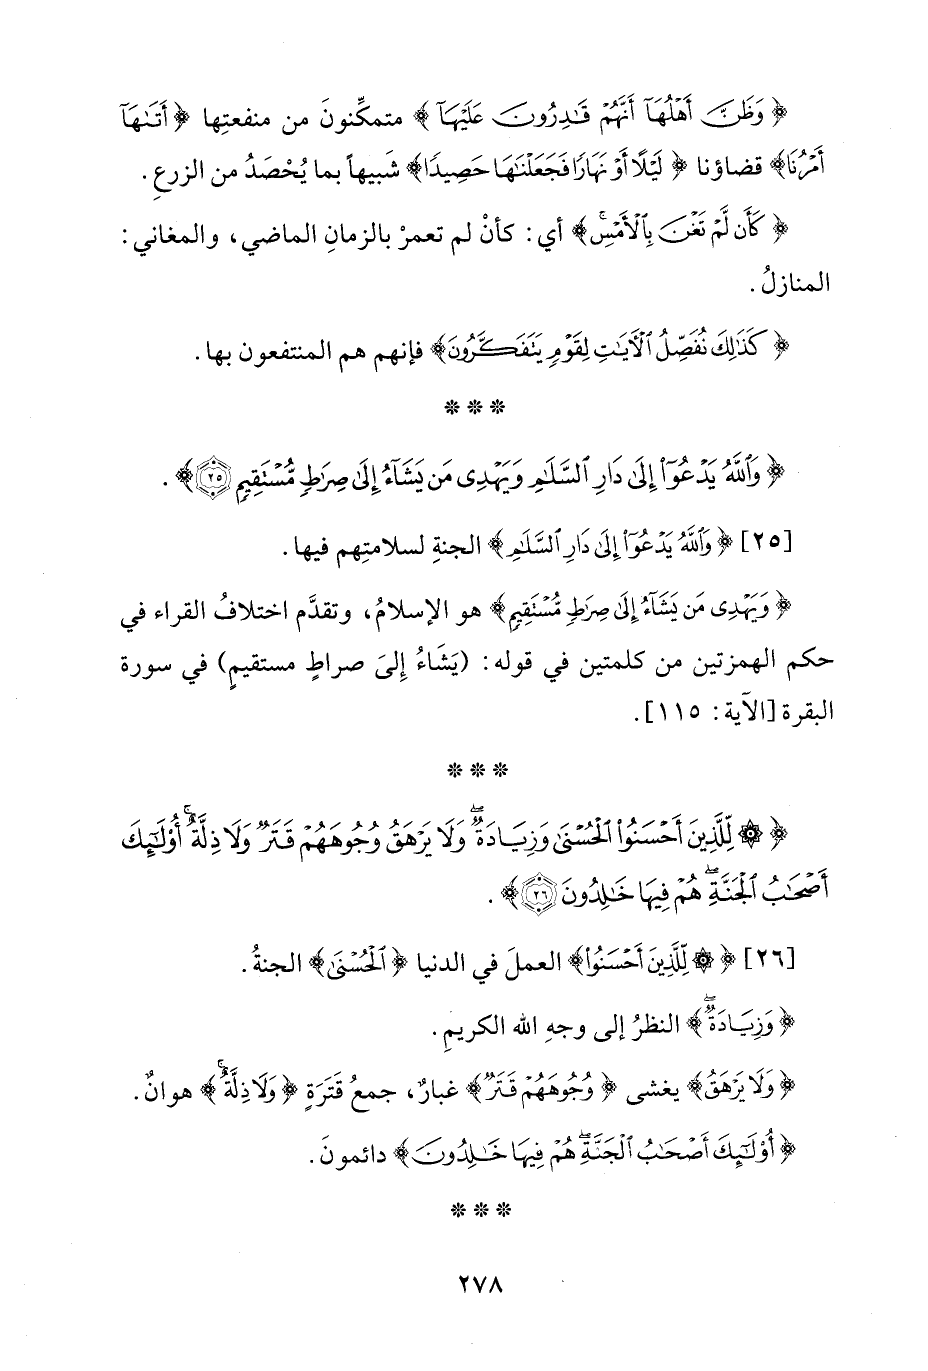 ﴿ وَظَنَّ أَهْلُهَآ أَنَّهُمْ قَٰدِرُونَ عَلَيْهَآ ﴾ متمكِّنونَ من منفعتِها ﴿ أَتَىٰهَآ
أَمْرُنَا﴾ قضاؤنا ﴿ لَيْلًا أَوْ نَهَارًا فَجَعَلْنَٰهَا حَصِيدًا﴾ شَبيهاً بما يُحْصَدُ من الزرعِ .
﴿ كَأَن لَّمْ تَغْنَ بِٱلْأَمْسِ ۚ﴾ أي : كأنْ لم تعمرْ بالزمانِ الماضي، والمغاني :
المنازلُ .
﴿ كَذَٰلِكَ نُفَصِّلُ ٱلْءَايَٰتِ لِقَوْمٍ يَتَفَكَّرُونَ﴾ فإنهم هم المنتفعون بها .
***
﴿ وَٱللَّهُ يَدْعُوٓا۟ إِلَىٰ دَارِ ٱلسَّلَٰمِ وَيَهْدِى مَن يَشَآءُ إِلَىٰ صِرَٰطٍ مُّسْتَقِيمٍ ٢٥﴾ .
[٢٥] ﴿ وَٱللَّهُ يَدْعُوٓا۟ إِلَىٰ دَارِ ٱلسَّلَٰمِ﴾ الجنةِ لسلامتِهم فيها .
﴿ وَيَهْدِى مَن يَشَآءُ إِلَىٰ صِرَٰطٍ مُّسْتَقِيمٍ﴾ هو الإسلامُ، وتقدَّم اختلافُ القراء في
حكم الهمزتين من كلمتين في قوله : (يَشَاءُ إِلىَ صراطٍ مستقيمٍ) في سورة
البقرة [الآية : ١١٥] .
***
﴿ ۞ لِّلَّذِينَ أَحْسَنُوا۟ ٱلْحُسْنَىٰ وَزِيَادَةٌ ۖ وَلَا يَرْهَقُ وُجُوهَهُمْ قَتَرٌ وَلَا ذِلَّةٌ ۚ أُو۟لَٰٓئِكَ
أَصْحَٰبُ ٱلْجَنَّةِ ۖ هُمْ فِيهَا خَٰلِدُونَ ٢٦﴾ .
[٢٦] ﴿ ۞ لِّلَّذِينَ أَحْسَنُوا۟﴾ العملَ في الدنيا ﴿ٱلْحُسْنَىٰ﴾ الجنةُ .
﴿ وَزِيَادَةٌ ۖ﴾ النظرُ إلى وجهِ الله الكريمِ .
﴿ وَلَا يَرْهَقُ﴾ يغشى ﴿ وُجُوهَهُمْ قَتَرٌ﴾ غبارٌ، جمعُ قَتَرَةٍ ﴿وَلَا ذِلَّةٌ ۚ﴾ هوانٌ .
﴿ أُو۟لَٰٓئِكَ أَصْحَٰبُ ٱلْجَنَّةِ ۖ هُمْ فِيهَا خَٰلِدُونَ ﴾ دائمونَ .
***
٢٧٨